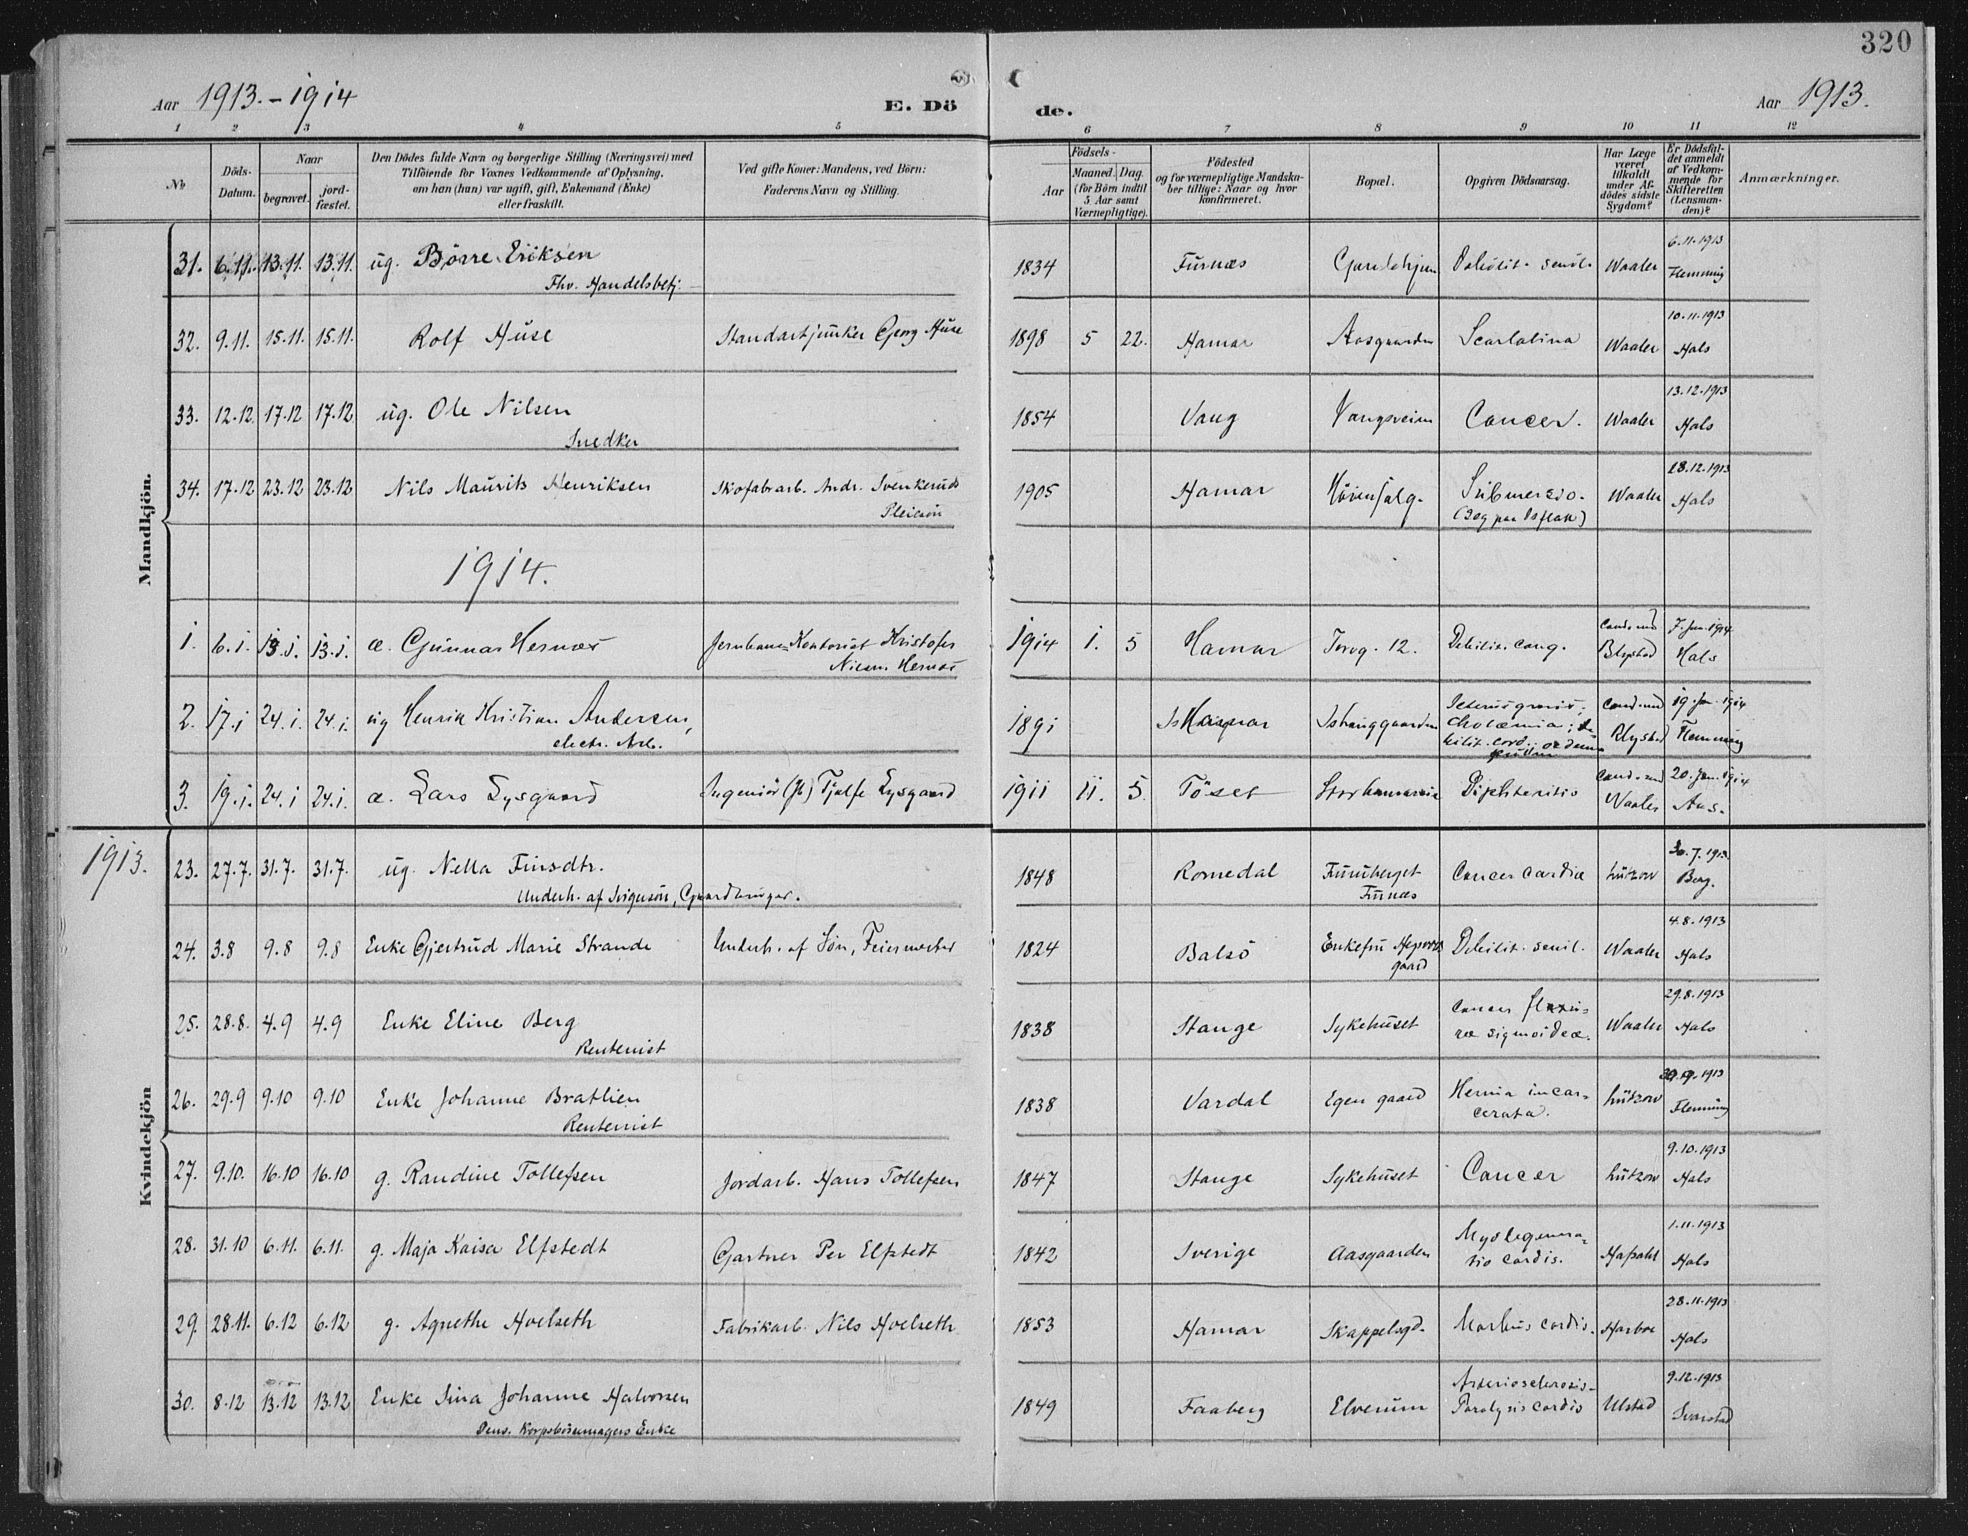 320
Aar 1913.-1914
E. Dö
de.
Aar 1913.
1 2 3 4 5 6 7 8 9 10 11 12
No.
Döds-Datum.
Naar
begravet.
jord-fæstet.
Den Dödes fulde Navn og borgerlige Stilling (Næringsvei) med
Tilföiende for Voxnes Vedkommende af Oplysning,
om han (hun) var ugift, gift, Enkemand (Enke)
eller fraskilt.
Ved gifte Koner: Mandens, ved Börn:
Faderens Navn og Stilling.
Födsels-
Aar
Maaned. Dag.
(for Börn indtil
5 Aar samt
Værnepligtige).
Födested
og for værnepligtige Mandska-
ber tillige: Naar og hvor
konfirmeret.
Bopæl.
Opgiven Dödsaarsag.
Har Læge
været
tilkaldt
under Af-
dödes sidste
Sygdom?
Er Dödsfal-
det anmeldt
af Vedkom-
mende for
Skifteretten
(Lensman-
den)?
Anmærkninger.
Mandkjön.
31. 6.11. 13.11. 13.11. ug. Börre Eriksen
Fhv. Handelsbetj.
1834 Furnæs Debilit. senil. Waaler 6.11.1913 Flemming
32. 9.11. 15.11. 15.11. Rolf Huse Standartjunker Georg Huse
1898 5 22. Hamar Aasgaarden Scarlatina Waaler 10.11.1913 Hals
33. 12.12 17.12 17.12 ug. Ole Nilsen
Snedker
1854 Vang Vangsveien Cancer. Waaler 13.12.1913 Hals
34. 17.12 23.12 23.12 Nils Maurits Henriksen Skofabrarb. Andr. Svenkerud
Pleiesön
1905 Hamar Submersio. Waaler 18.12.1913 Hals
1914.
1. 6.1. 13.1. 13.1. a. Gunnar Hernæs Jernbane-Kontorist Kristofer
Nilsen Hernæs
1914 1. 5 Hamar Torvg. 12. Debilit. cong. Cand. med Blystad 7. Jan. 1914 Hals
2. 17.1 24.1. 24.1. ug Henrik Kristian Andersen,
electr. Arb.
1891 Hamar Icterus gravis;
cholæmia;
Cand. med Blystad 19. Jan. 1914 Flemming
3. 19.1. 24.1 24.1. a. Lars Lysgaard Ingeniör Tjalfe Lysgaard
1911 11. 5. Töset Storhamarveien Diphteritis Cand. med Waaler 20. Jan. 1914 Aas.
1913.
Kvindekjön
23. 27.7. 31.7. 31.7. ug. Nella Finsdtr.
Underh. af Gaardbruger.
1848 Romedal Furuberget
Furnæs
Cancer cardiæ Lützow 30.7.1913 Berg.
24. 3.8 9.8 9.8 Enke Gjertrud Marie Strande Underh. af Sön, Feiermester
1824 Balsö Enkefru
gaard
Debilit. senil. Waaler 4.8.1913 Hals
25. 28.8. 4.9 4.9 Enke Eline Berg
Rentenist
1838 Stange Sykehuset Cancer flexu-
ræ sigmoideæ. Waaler 29.8.1913 Hals
26. 29.9 9.10 9.10 Enke Johanne Bratlien
Rentenist
1838 Vardal Egen gaard Hernia incar-
cerata. Lützow 30.9.1913 Flemming
27. 9.10. 16.10 16.10 g. Randine Tollefsen Jordarb. Hans Tollefsen
1847 Stange Sykehuset Cancer Lützow 9.10.1913 Hals
28. 31.10 6.11. 6.11. g. Maja Kaisa Elfstedt Gartner Per Elfstedt
1842 Sverige Aasgaarden Myodegenera-
tio cordis. 1.11.1913 Hals
29. 28.11. 6.12 6.12 g. Agnethe Hvelseth Fabrikarb. Nils Hoelseth.
1853 Hamar Skappelsgd. Morbus cordis. Harboe 28.11.1913 Hals
30. 8.12 13.12 13.12 Enke Sina Johanne Halvorsen
Pens. Korpsbösemagers Enke
1849 Faaberg Elverum Arteriosclerosis-
Paralysis cordis Ulstad 9.12.1913 Svarstad